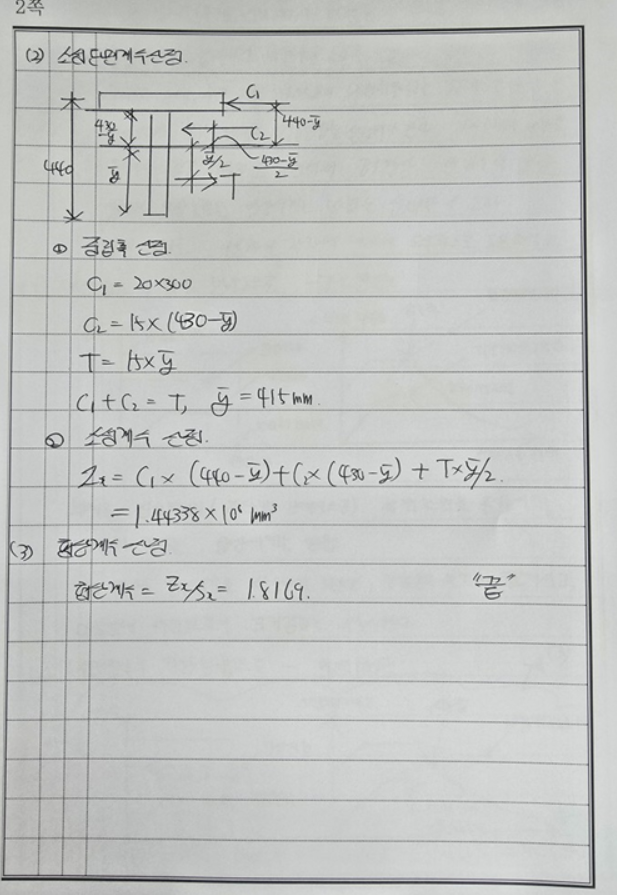 2쪽
(2) 소성단면계수 산정.
C₁
430-ȳ
440-ȳ
C₂
440
ȳ
ȳ/2
(430-ȳ)/2
T
① 중립축 산정.
C₁ = 20×300
C₂ = 15×(430-ȳ)
T = 15×ȳ
C₁+C₂ = T, ȳ = 415mm.
② 소성계수 산정.
Zx = C₁×(440-ȳ)+C₂×(430-ȳ) + T×ȳ/2.
= 1.44338×10⁶ mm³
(3) 형상계수 산정.
형상계수 = Zx/Sx = 1.8169. "끝"